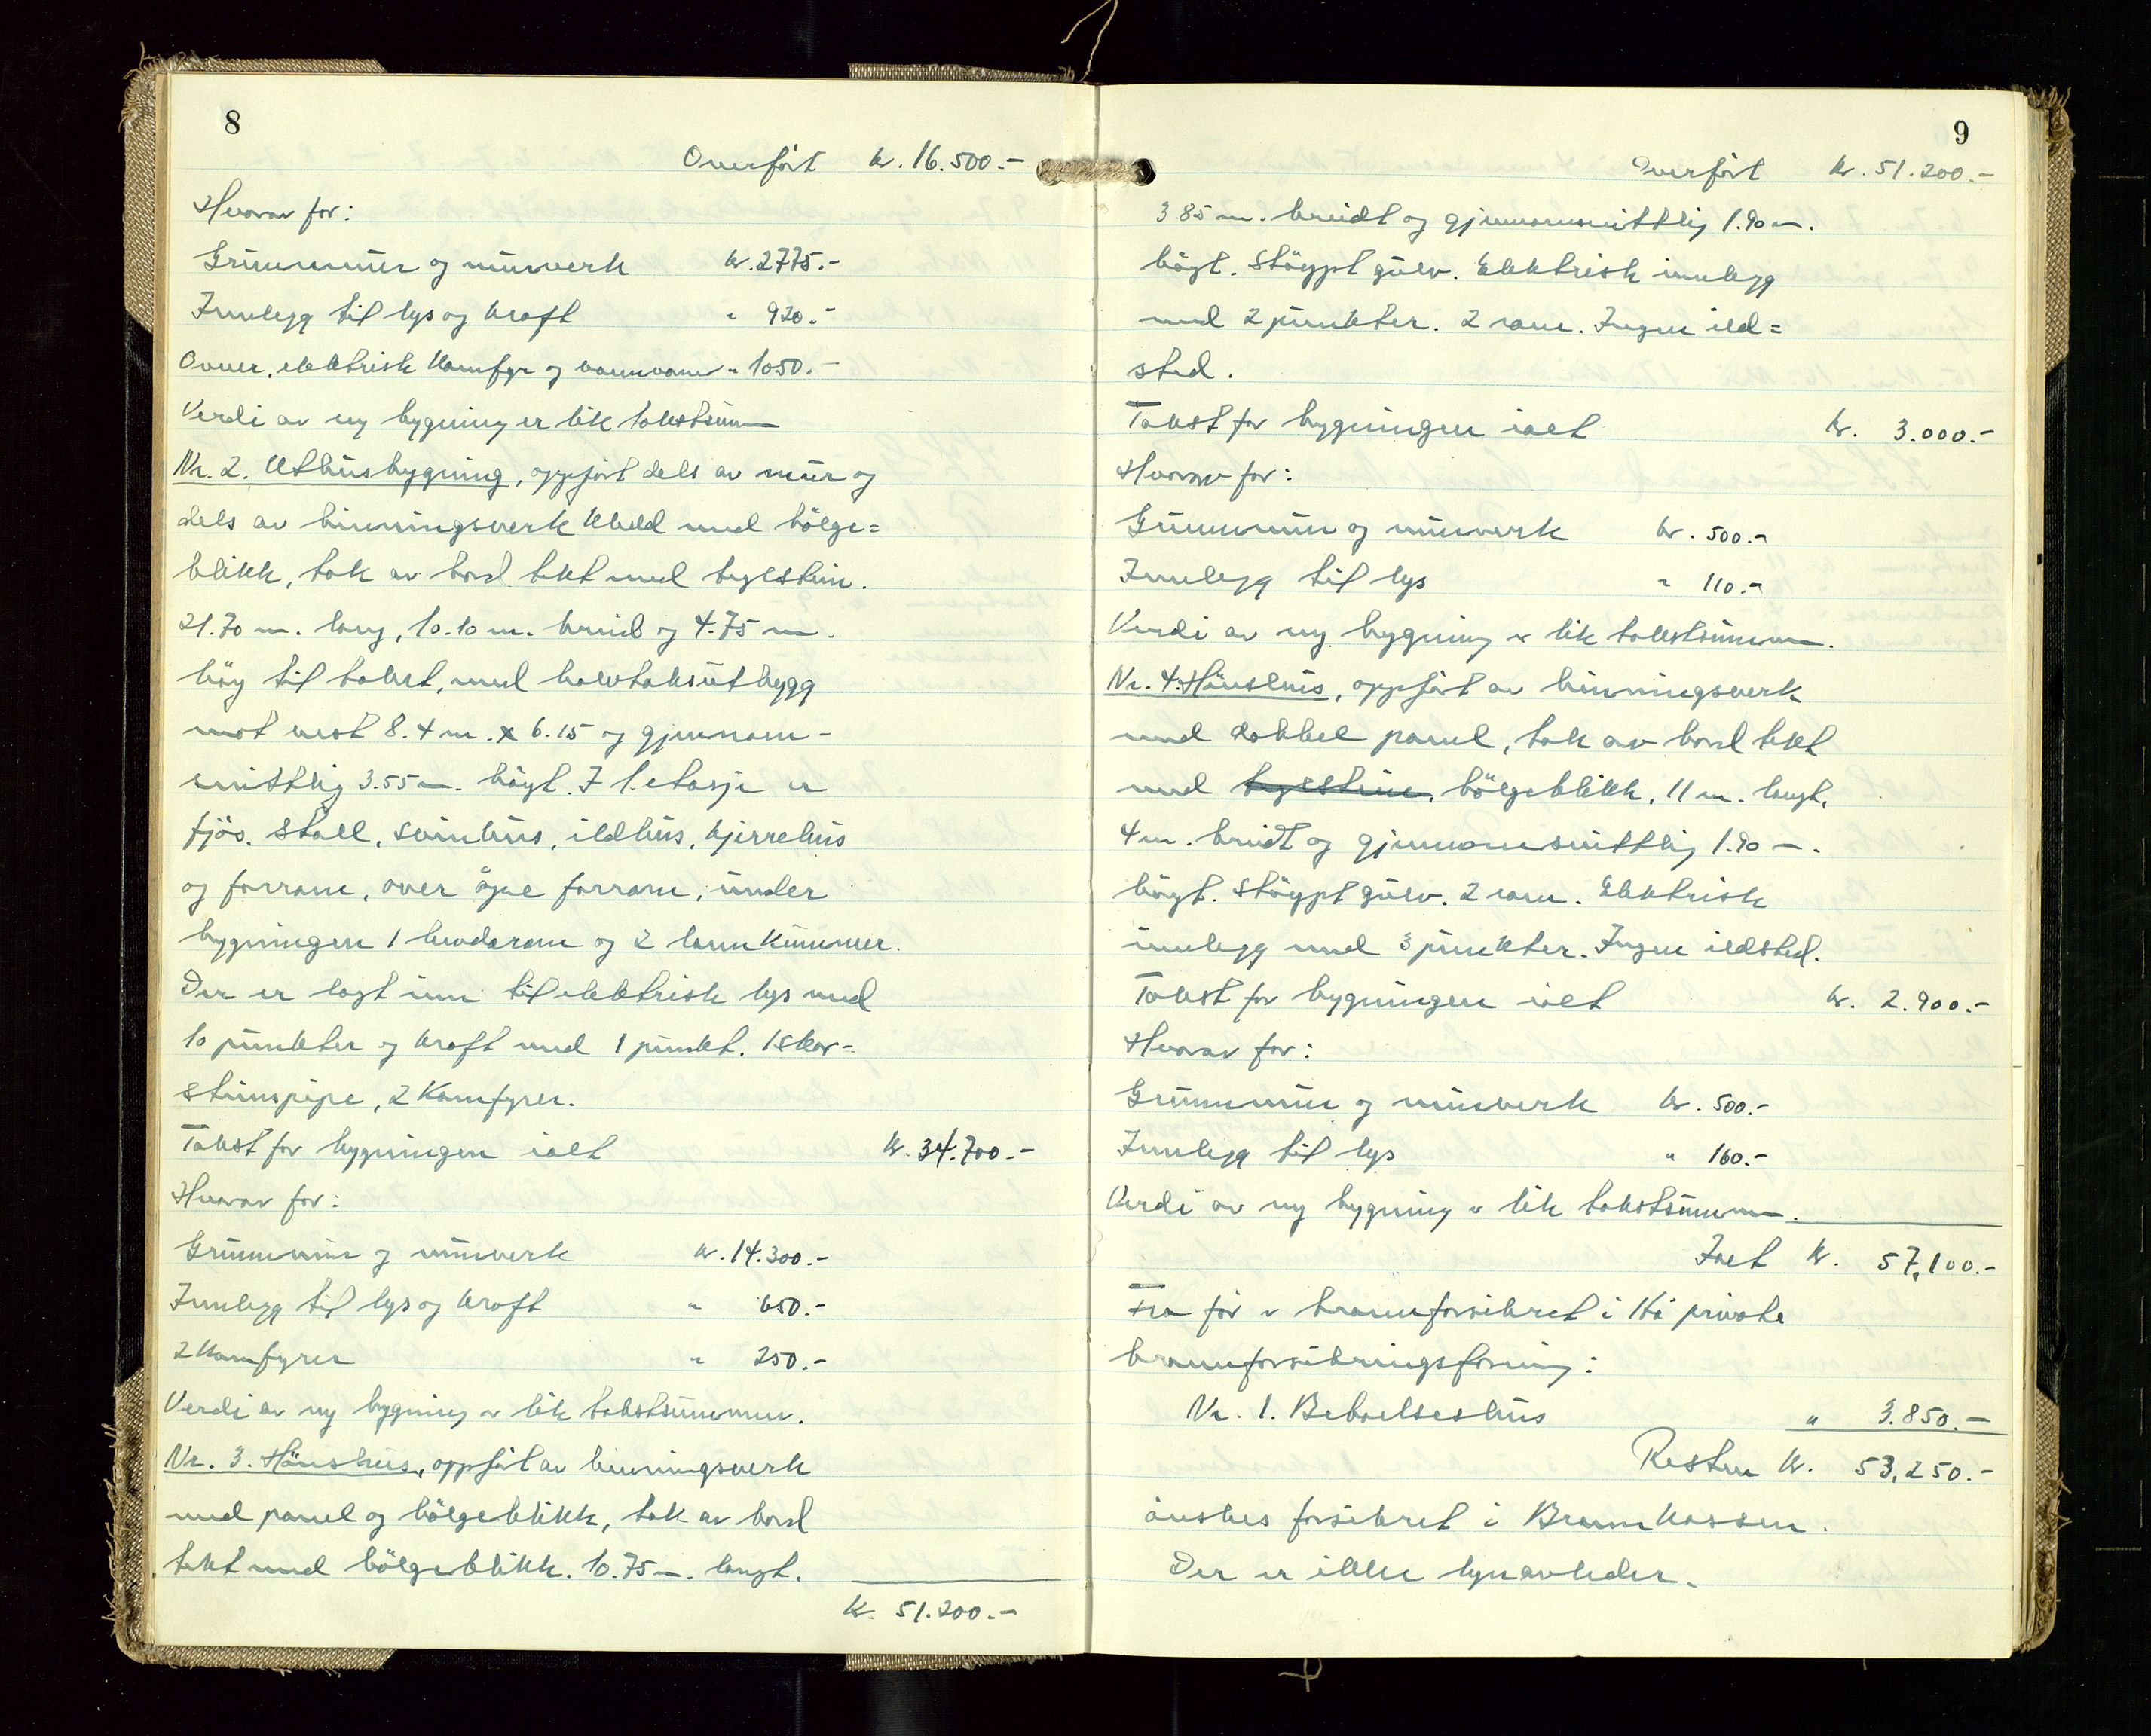 8
Overført kr. 16.500.-
Hvorav for:
Grunnmur og murverk kr. 2775.-
Innlegg til lys og kraft " 920.-
Ovner, elektrisk kamfyr og vannvarmer " 1050.-
Verdi av ny bygning er lik takstsum
Nr. 2. Uthusbygning, oppført dels av mur og
dels av binningsverk kledd med bölge=
blikk, tak av bord tekt med teglstein.
21.70 m. lang, 10.10 m. breid og 4.75 m.
höy til taket, med halvtaksutbygg
mot vest 8.4 m. x 6.15 og gjennom-
snittlig 3.55 m. höyt. I 1. etasje er
fjös. Stall, svinhus, ildhus, kjerrehus
og forrom, over öyne forrom, under
bygningen 1 landkummer.
Der er lagt inn til elektrisk lys med
10 punkter og kraft med 1 punkt. 1 skor-
steinspipe, 2 Kamfyrer.
Takst for bygningen ialt kr. 34.700.-
Hvorav for:
Grunnmur og murverk kr. 14.300.-
Innlegg til lys og kraft " 650.-
2 Kamfyrer " 250.-
Verdi av ny bygning er lik takstsummen.
Nr. 3. Hönshus, oppfört av binningsverk
med panel og bölgeblikk, tak av bord
tekt med bölgeblikk. 10.75 m. langt.
kr. 51.200.-
9
Overført kr. 51.200.-
3 85 m. breidt og gjennomsnittlig 1.90 m.
höyt. Stöypt gulv. Elektrisk innlegg
med 2 punkter. 2 rom. Ingen ild=
sted.
Takst for bygningen ialt kr. 3.000.-
Hvorav for:
Grunnmur og murverk kr. 500.-
Innlegg til lys " 110.-
Verdi av ny bygning er lik takstsummen.
Nr. 4. Hönshus, oppfört av binningsverk
med dobbel panel, tak av bord tekt
med teglstein, bölgeblikk. 11 m. langt.
4 m. breidt og gjennomsnittlig 1.90 m.
höyt. Stöypt gulv. 2 rom. Elektrisk
innlegg med 3 punkter. Ingen ildsted.
Takst for bygningen ialt kr. 2.900.-
Hvorav for:
Grunnmur og murverk kr. 500.-
Innlegg til lys " 160.-
Verdi av ny bygning er lik takstsummen.
Ialt kr. 57,100.-
Fra för er brannforsikret i Hå private
brannforsikringsforening:
Nr. 1. Beboelseshus " 3.850.-
Resten kr. 53,250.-
önskes forsikret i Brannkassen.
Der er ikke lynavleder.